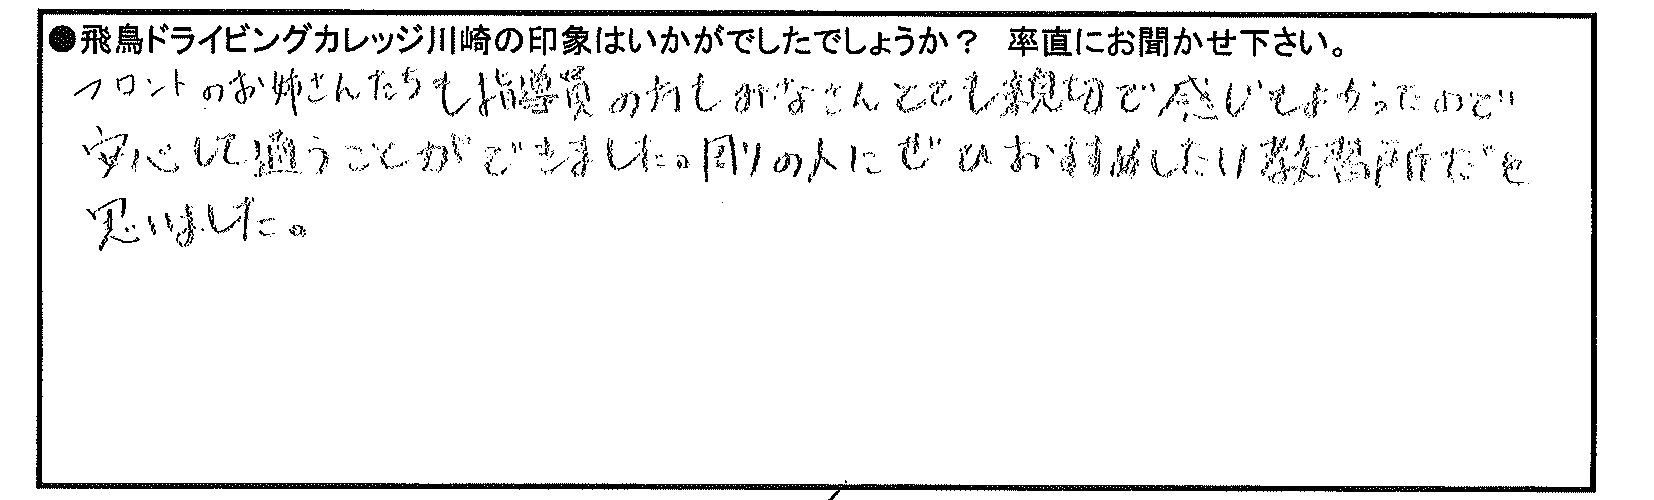 ●飛鳥ドライビングカレッジ川崎の印象はいかがでしたでしょうか？ 率直にお聞かせ下さい。
フロントのお姉さんたちも指導員の方もみなさんとても親切で感じもよかったので
安心して通うことができました。周りの人にぜひおすすめしたい教習所だと
思いました。